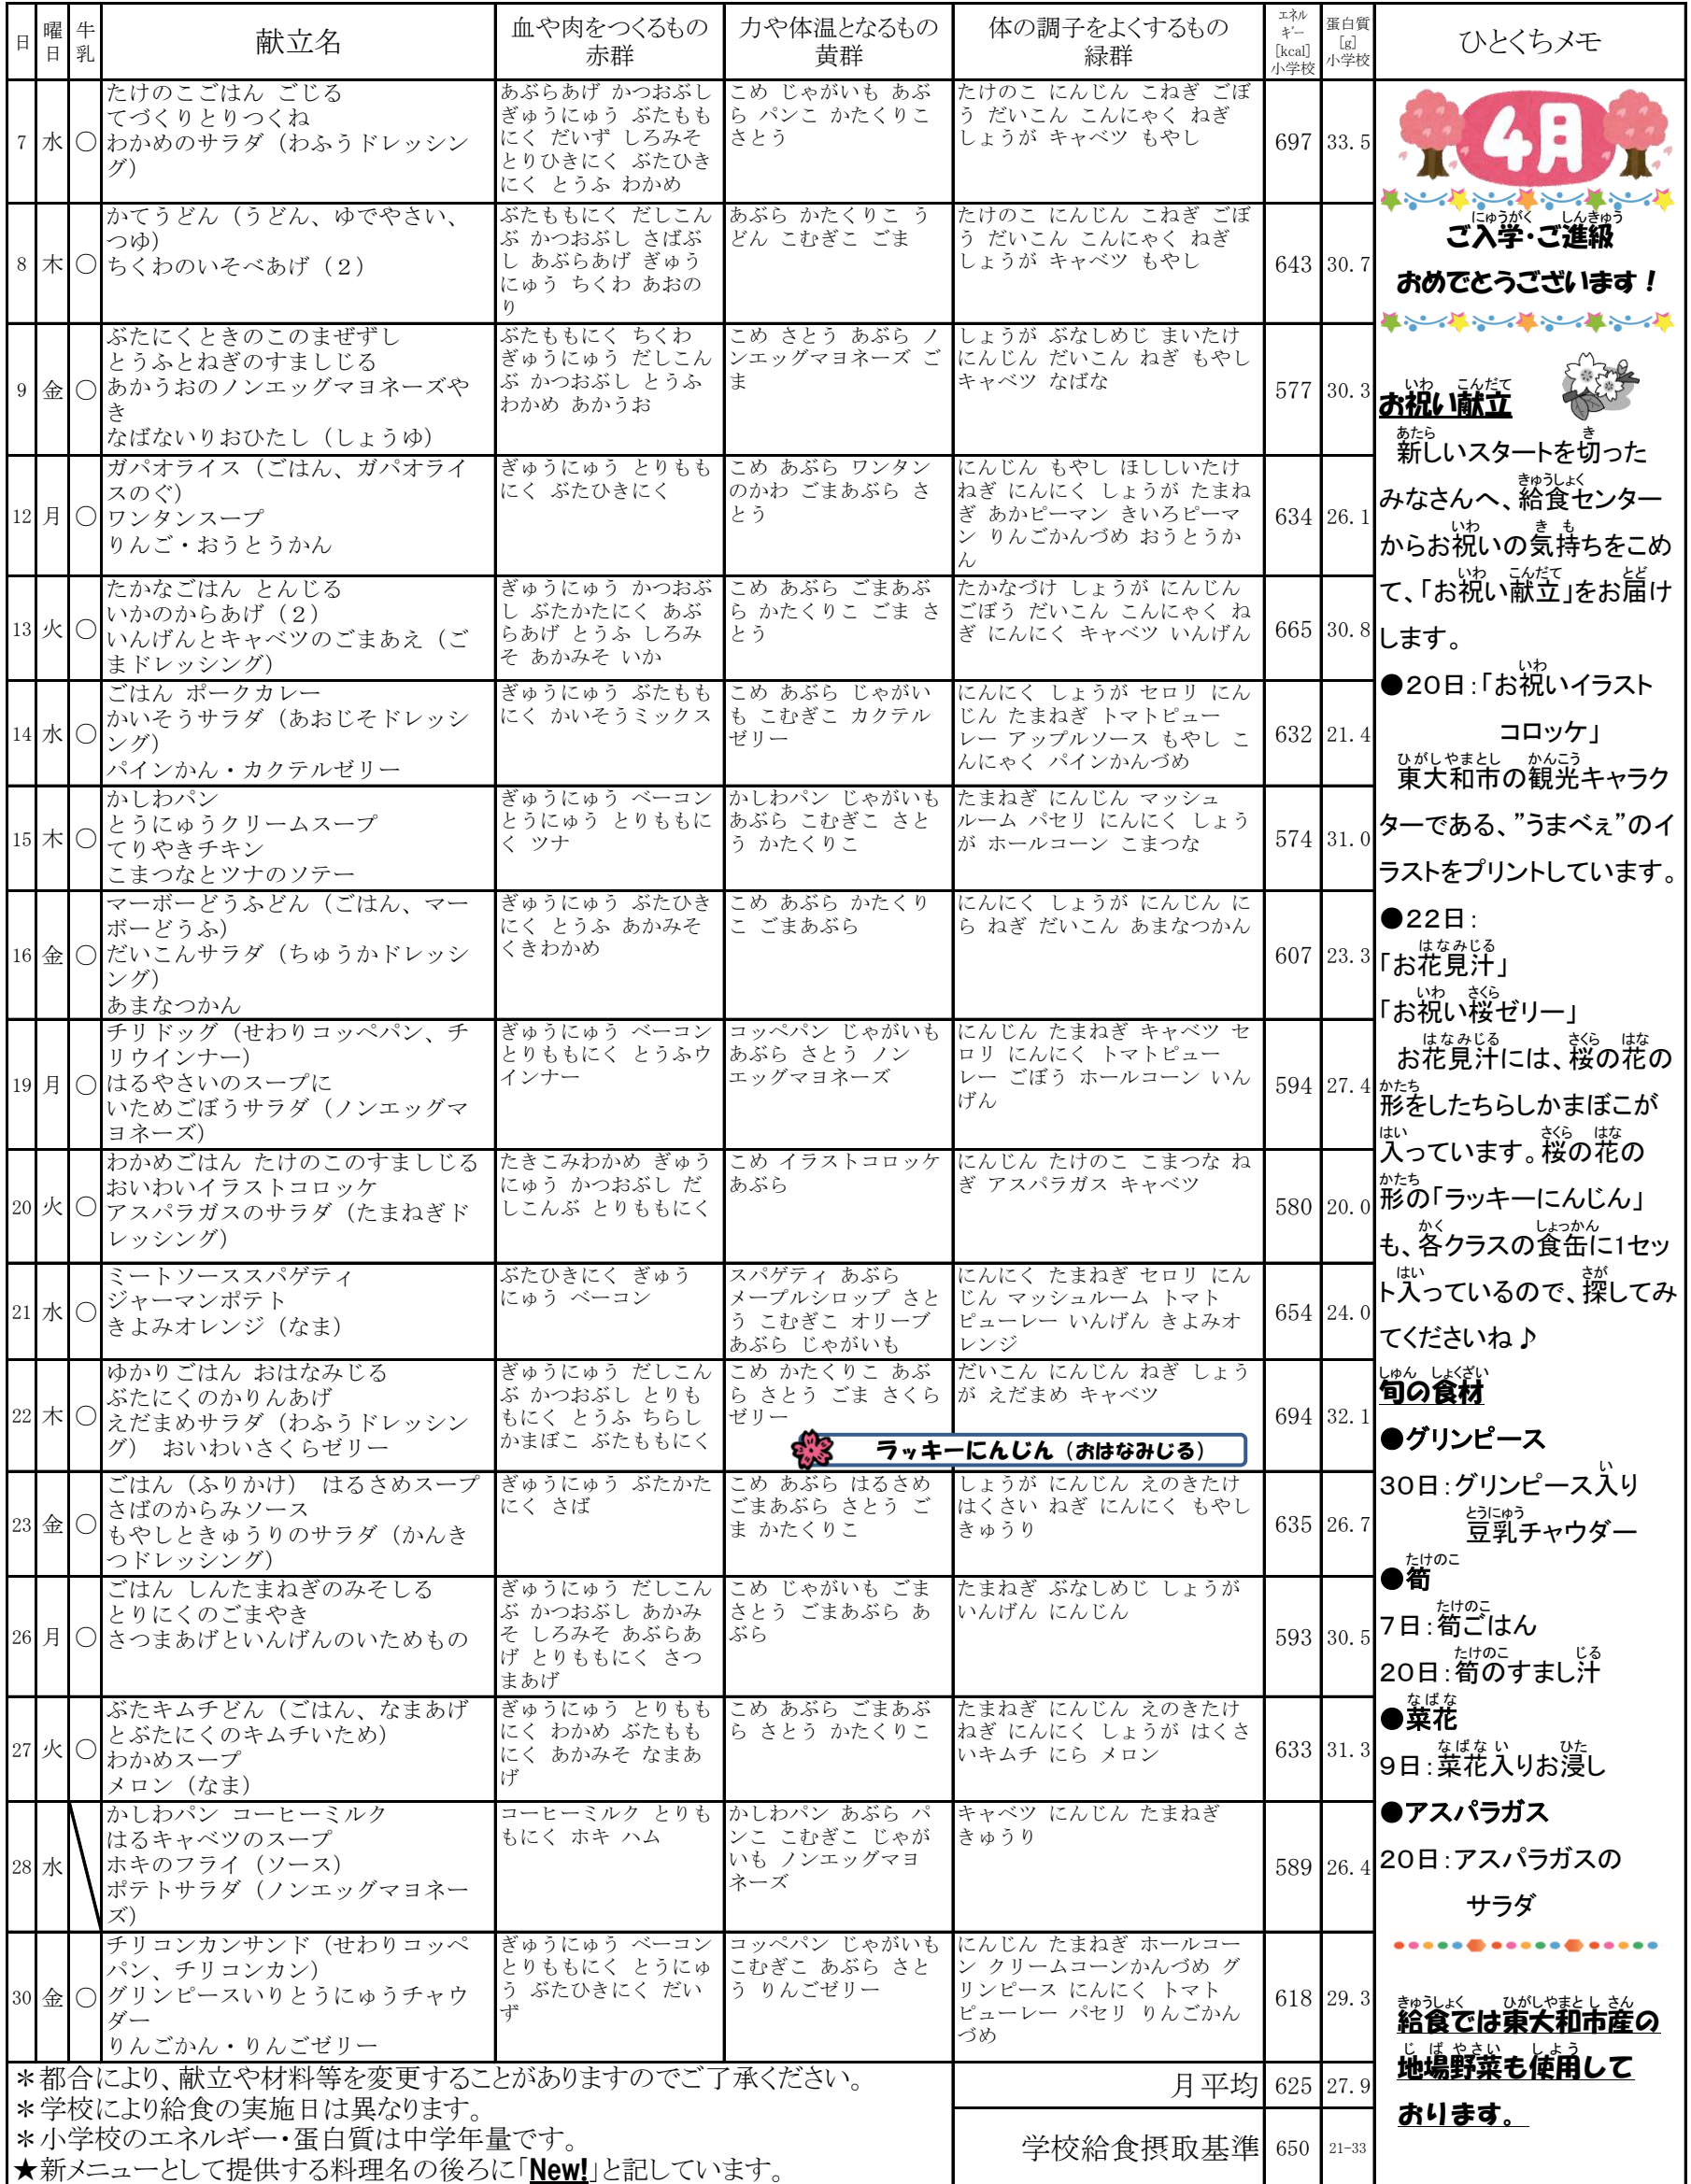 日 曜日 牛乳 献立名 血や肉をつくるもの 赤群 力や体温となるもの 黄群 体の調子をよくするもの 緑群 エネルギー [kcal] 小学校 蛋白質 [g] 小学校 ひとくちメモ
7 水 ○
たけのこごはん ごじる
てづくりとりつくね
わかめのサラダ（わふうドレッシン
グ）
あぶらあげ かつおぶし
ぎゅうにゅう ぶたもも
にく だいず しろみそ
とりひきにく ぶたひき
にく とうふ わかめ
こめ じゃがいも あぶ
ら パンこ かたくりこ
さとう
たけのこ にんじん こねぎ ごぼ
う だいこん こんにゃく ねぎ
しょうが キャベツ もやし
697 33.5
8 木 ○
かてうどん（うどん、ゆでやさい、
つゆ）
ちくわのいそべあげ（２）
ぶたももにく だしこん
ぶ かつおぶし さばぶ
し あぶらあげ ぎゅう
にゅう ちくわ あおの
り
あぶら かたくりこ う
どん こむぎこ ごま
たけのこ にんじん こねぎ ごぼ
う だいこん こんにゃく ねぎ
しょうが キャベツ もやし
643 30.7
9 金 ○
ぶたにくときのこのまぜずし
とうふとねぎのすましじる
あかうおのノンエッグマヨネーズや
き
なばないりおひたし（しょうゆ）
ぶたももにく ちくわ
ぎゅうにゅう だしこん
ぶ かつおぶし とうふ
わかめ あかうお
こめ さとう あぶら ノ
ンエッグマヨネーズ ご
ま
しょうが ぶなしめじ まいたけ
にんじん だいこん ねぎ もやし
キャベツ なばな
577 30.3
12 月 ○
ガパオライス（ごはん、ガパオライ
スのぐ）
ワンタンスープ
りんご・おうとうかん
ぎゅうにゅう とりもも
にく ぶたひきにく
こめ あぶら ワンタン
のかわ ごまあぶら さ
とう
にんじん もやし ほししいたけ
ねぎ にんにく しょうが たまね
ぎ あかピーマン きいろピーマ
ン りんごかんづめ おうとうか
ん
634 26.1
13 火 ○
たかなごはん とんじる
いかのからあげ（２）
いんげんとキャベツのごまあえ（ご
まドレッシング）
ぎゅうにゅう かつおぶ
し ぶたかたにく あぶ
らあげ とうふ しろみ
そ あかみそ いか
こめ あぶら ごまあぶ
ら かたくりこ ごま さ
とう
たかなづけ しょうが にんじん
ごぼう だいこん こんにゃく ね
ぎ にんにく キャベツ いんげん
665 30.8
14 水 ○
ごはん ポークカレー
かいそうサラダ（あおじそドレッシ
ング）
パインかん・カクテルゼリー
ぎゅうにゅう ぶたもも
にく かいそうミックス
こめ あぶら じゃがい
も こむぎこ カクテル
ゼリー
にんにく しょうが セロリ にん
じん たまねぎ トマトピュー
レー アップルソース もやし こ
んにゃく パインかんづめ
632 21.4
15 木 ○
かしわパン
とうにゅうクリームスープ
てりやきチキン
こまつなとツナのソテー
ぎゅうにゅう ベーコン
とうにゅう とりももに
く ツナ
かしわパン じゃがいも
あぶら こむぎこ さと
う かたくりこ
たまねぎ にんじん マッシュ
ルーム パセリ にんにく しょう
が ホールコーン こまつな
574 31.0
16 金 ○
マーボーどうふどん（ごはん、マー
ボーどうふ）
だいこんサラダ（ちゅうかドレッシ
ング）
あまなつかん
ぎゅうにゅう ぶたひき
にく とうふ あかみそ
くきわかめ
こめ あぶら かたくり
こ ごまあぶら
にんにく しょうが にんじん に
ら ねぎ だいこん あまなつかん
607 23.3
19 月 ○
チリドッグ（せわりコッペパン、チ
リウインナー）
はるやさいのスープに
いためごぼうサラダ（ノンエッグマ
ヨネーズ）
ぎゅうにゅう ベーコン
とりももにく とうふウ
インナー
コッペパン じゃがいも
あぶら さとう ノン
エッグマヨネーズ
にんじん たまねぎ キャベツ セ
ロリ にんにく トマトピュー
レー ごぼう ホールコーン いん
げん
594 27.4
20 火 ○
わかめごはん たけのこのすましじる
おいわいイラストコロッケ
アスパラガスのサラダ（たまねぎド
レッシング）
たきこみわかめ ぎゅう
にゅう かつおぶし だ
しこんぶ とりももにく
こめ イラストコロッケ
あぶら
にんじん たけのこ こまつな ね
ぎ アスパラガス キャベツ
580 20.0
21 水 ○
ミートソーススパゲティ
ジャーマンポテト
きよみオレンジ（なま）
ぶたひきにく ぎゅう
にゅう ベーコン
スパゲティ あぶら
メープルシロップ さと
う こむぎこ オリーブ
あぶら じゃがいも
にんにく たまねぎ セロリ にん
じん マッシュルーム トマト
ピューレー いんげん きよみオ
レンジ
654 24.0
22 木 ○
ゆかりごはん おはなみじる
ぶたにくのかりんあげ
えだまめサラダ（わふうドレッシン
グ） おいわいさくらゼリー
ぎゅうにゅう だしこん
ぶ かつおぶし とりも
もにく とうふ ちらし
かまぼこ ぶたももにく
こめ かたくりこ あぶ
ら さとう ごま さくら
ゼリー
だいこん にんじん ねぎ しょう
が えだまめ キャベツ
ラッキーにんじん（おはなみじる）
694 32.1
23 金 ○
ごはん（ふりかけ） はるさめスープ
さばのからみソース
もやしときゅうりのサラダ（かんき
つドレッシング）
ぎゅうにゅう ぶたかた
にく さば
こめ あぶら はるさめ
ごまあぶら さとう ご
ま かたくりこ
しょうが にんじん えのきたけ
はくさい ねぎ にんにく もやし
きゅうり
635 26.7
26 月 ○
ごはん しんたまねぎのみそしる
とりにくのごまやき
さつまあげといんげんのいためもの
ぎゅうにゅう だしこん
ぶ かつおぶし あかみ
そ しろみそ あぶらあ
げ とりももにく さつ
まあげ
こめ じゃがいも ごま
さとう ごまあぶら あ
ぶら
たまねぎ ぶなしめじ しょうが
いんげん にんじん
593 30.5
27 火 ○
ぶたキムチどん（ごはん、なまあげ
とぶたにくのキムチいため）
わかめスープ
メロン（なま）
ぎゅうにゅう とりもも
にく わかめ ぶたもも
にく あかみそ なまあ
げ
こめ あぶら ごまあぶ
ら さとう かたくりこ
たまねぎ にんじん えのきたけ
ねぎ にんにく しょうが はくさ
いキムチ にら メロン
633 31.3
28 水
かしわパン コーヒーミルク
はるキャベツのスープ
ホキのフライ（ソース）
ポテトサラダ（ノンエッグマヨネー
ズ）
コーヒーミルク とりも
もにく ホキ ハム
かしわパン あぶら パ
ンこ こむぎこ じゃが
いも ノンエッグマヨ
ネーズ
キャベツ にんじん たまねぎ
きゅうり
589 26.4
30 金 ○
チリコンカンサンド（せわりコッペ
パン、チリコンカン）
グリンピースいりとうにゅうチャウ
ダー
りんごかん・りんごゼリー
ぎゅうにゅう ベーコン
とりももにく とうにゅ
う ぶたひきにく だい
ず
コッペパン じゃがいも
こむぎこ あぶら さと
う りんごゼリー
にんじん たまねぎ ホールコー
ン クリームコーンかんづめ グ
リンピース にんにく トマト
ピューレー パセリ りんごかん
づめ
618 29.3
＊都合により、献立や材料等を変更することがありますのでご了承ください。
＊学校により給食の実施日は異なります。
＊小学校のエネルギー・蛋白質は中学年量です。
★新メニューとして提供する料理名の後ろに「New!」と記しています。
月平均 625 27.9
学校給食摂取基準 650 21-33
4月
にゅうがく しんきゅう
ご入学・ご進級
おめでとうございます！
いわ こんだて
お祝い献立
あたら き
新しいスタートを切った
きゅうしょく
みなさんへ、給食センター
いわ き も
からお祝いの気持ちをこめ
いわ こんだて とど
て、「お祝い献立」をお届け
します。
いわ
●20日：「お祝いイラスト
コロッケ」
ひがしやまとし かんこう
東大和市の観光キャラク
ターである、”うまべぇ”のイ
ラストをプリントしています。
●22日：
はなみじる
「お花見汁」
いわ さくら
「お祝い桜ゼリー」
はなみじる さくら はな
お花見汁には、桜の花の
かたち
形をしたちらしかまぼこが
はい さくら はな
入っています。桜の花の
かたち
形の「ラッキーにんじん」
かく しょっかん
も、各クラスの食缶に1セッ
はい さが
ト入っているので、探してみ
てくださいね♪
しゅん しょくざい
旬の食材
●グリンピース
い
30日：グリンピース入り
とうにゅう
豆乳チャウダー
たけのこ
●筍
たけのこ
7日：筍ごはん
たけのこ じる
20日：筍のすまし汁
なばな
●菜花
なばない ひた
9日：菜花入りお浸し
●アスパラガス
20日：アスパラガスの
サラダ
きゅうしょく ひがしやまとし さん
給食では東大和市産の
じ ば やさい しよう
地場野菜も使用して
おります。